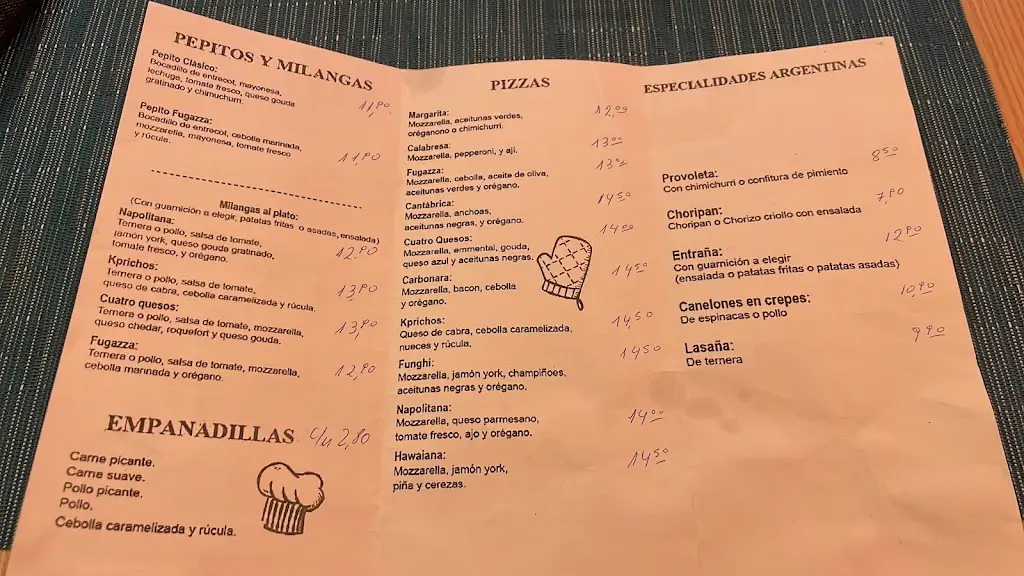 PEPITOS Y MILANGAS
Pepito Clásico:
Bocadillo de entrecot, mayonesa,
lechuga, tomate fresco, queso gouda
gratinado y chimuchurri.
11,90
Pepito Fugazza:
Bocadillo de entrecot, cebolla marinada,
mozzarella, mayonesa, tomate fresco
y rúcula.
11,90
Milangas al plato:
(Con guarnición a elegir, patatas fritas o asadas, ensalada)
Napolitana:
Ternera o pollo, salsa de tomate,
jamón york, queso gouda gratinado,
tomate fresco, y orégano.
12,90
Kprichos:
Ternera o pollo, salsa de tomate,
queso de cabra, cebolla caramelizada y rúcula.
13,90
Cuatro quesos:
Ternera o pollo, salsa de tomate, mozzarella,
queso chedar, roquefort y queso gouda.
13,90
Fugazza:
Ternera o pollo, salsa de tomate, mozzarella,
cebolla marinada y orégano.
12,90
EMPANADILLAS c/u 2,80
Carne picante.
Carne suave.
Pollo picante.
Pollo.
Cebolla caramelizada y rúcula.
PIZZAS
Margarita:
Mozzarella, aceitunas verdes,
oréganono o chimichurri.
12,00
Calabresa:
Mozzarella, pepperoni, y aji.
13,00
Fugazza:
Mozzarella, cebolla, aceite de oliva,
aceitunas verdes y orégano.
Cantábrica:
Mozzarella, anchoas,
aceitunas negras, y orégano.
14,50
Cuatro Quesos:
Mozzarella, emmental, gouda,
queso azul y aceitunas negras.
14,00
Carbonara:
Mozzarella, bacon, cebolla
y orégano.
14,50
Kprichos:
Queso de cabra, cebolla caramelizada,
nueces y rúcula.
14,50
Funghi:
Mozzarella, jamón york, champiñoes,
aceitunas negras y orégano.
14,50
Napolitana:
Mozzarella, queso parmesano,
tomate fresco, ajo y orégano.
14,00
Hawaiana:
Mozzarella, jamón york,
piña y cerezas.
14,50
ESPECIALIDADES ARGENTINAS
Provoleta:
Con chimichurri o confitura de pimiento
8,50
Choripan:
Choripan o Chorizo criollo con ensalada
7,90
Entraña:
Con guarnición a elegir
(ensalada o patatas fritas o patatas asadas)
12,90
Canelones en crepes:
De espinacas o pollo
10,90
Lasaña:
De ternera
9,90